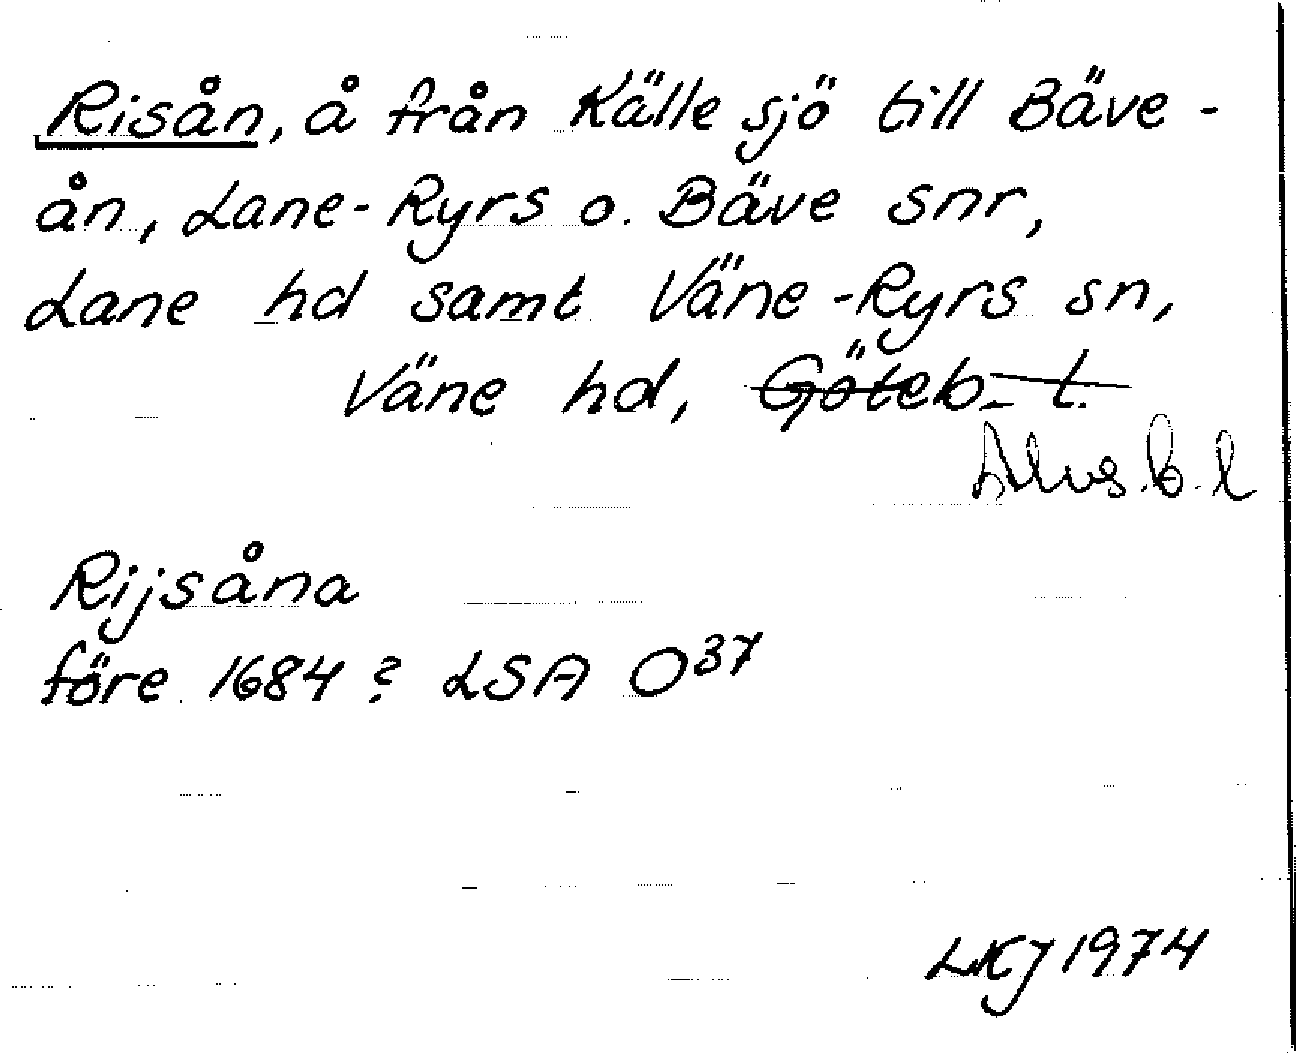 Risån, å från Källe sjö till Bäve-
ån, Lane-Ryrs o. Bäve snr,
Lane hd samt Väne-Ryrs sn,
Väne hd, Göteb. l.
Älvsb. l
Rijsåna
före 1684? LSA O37
LKJ 1974